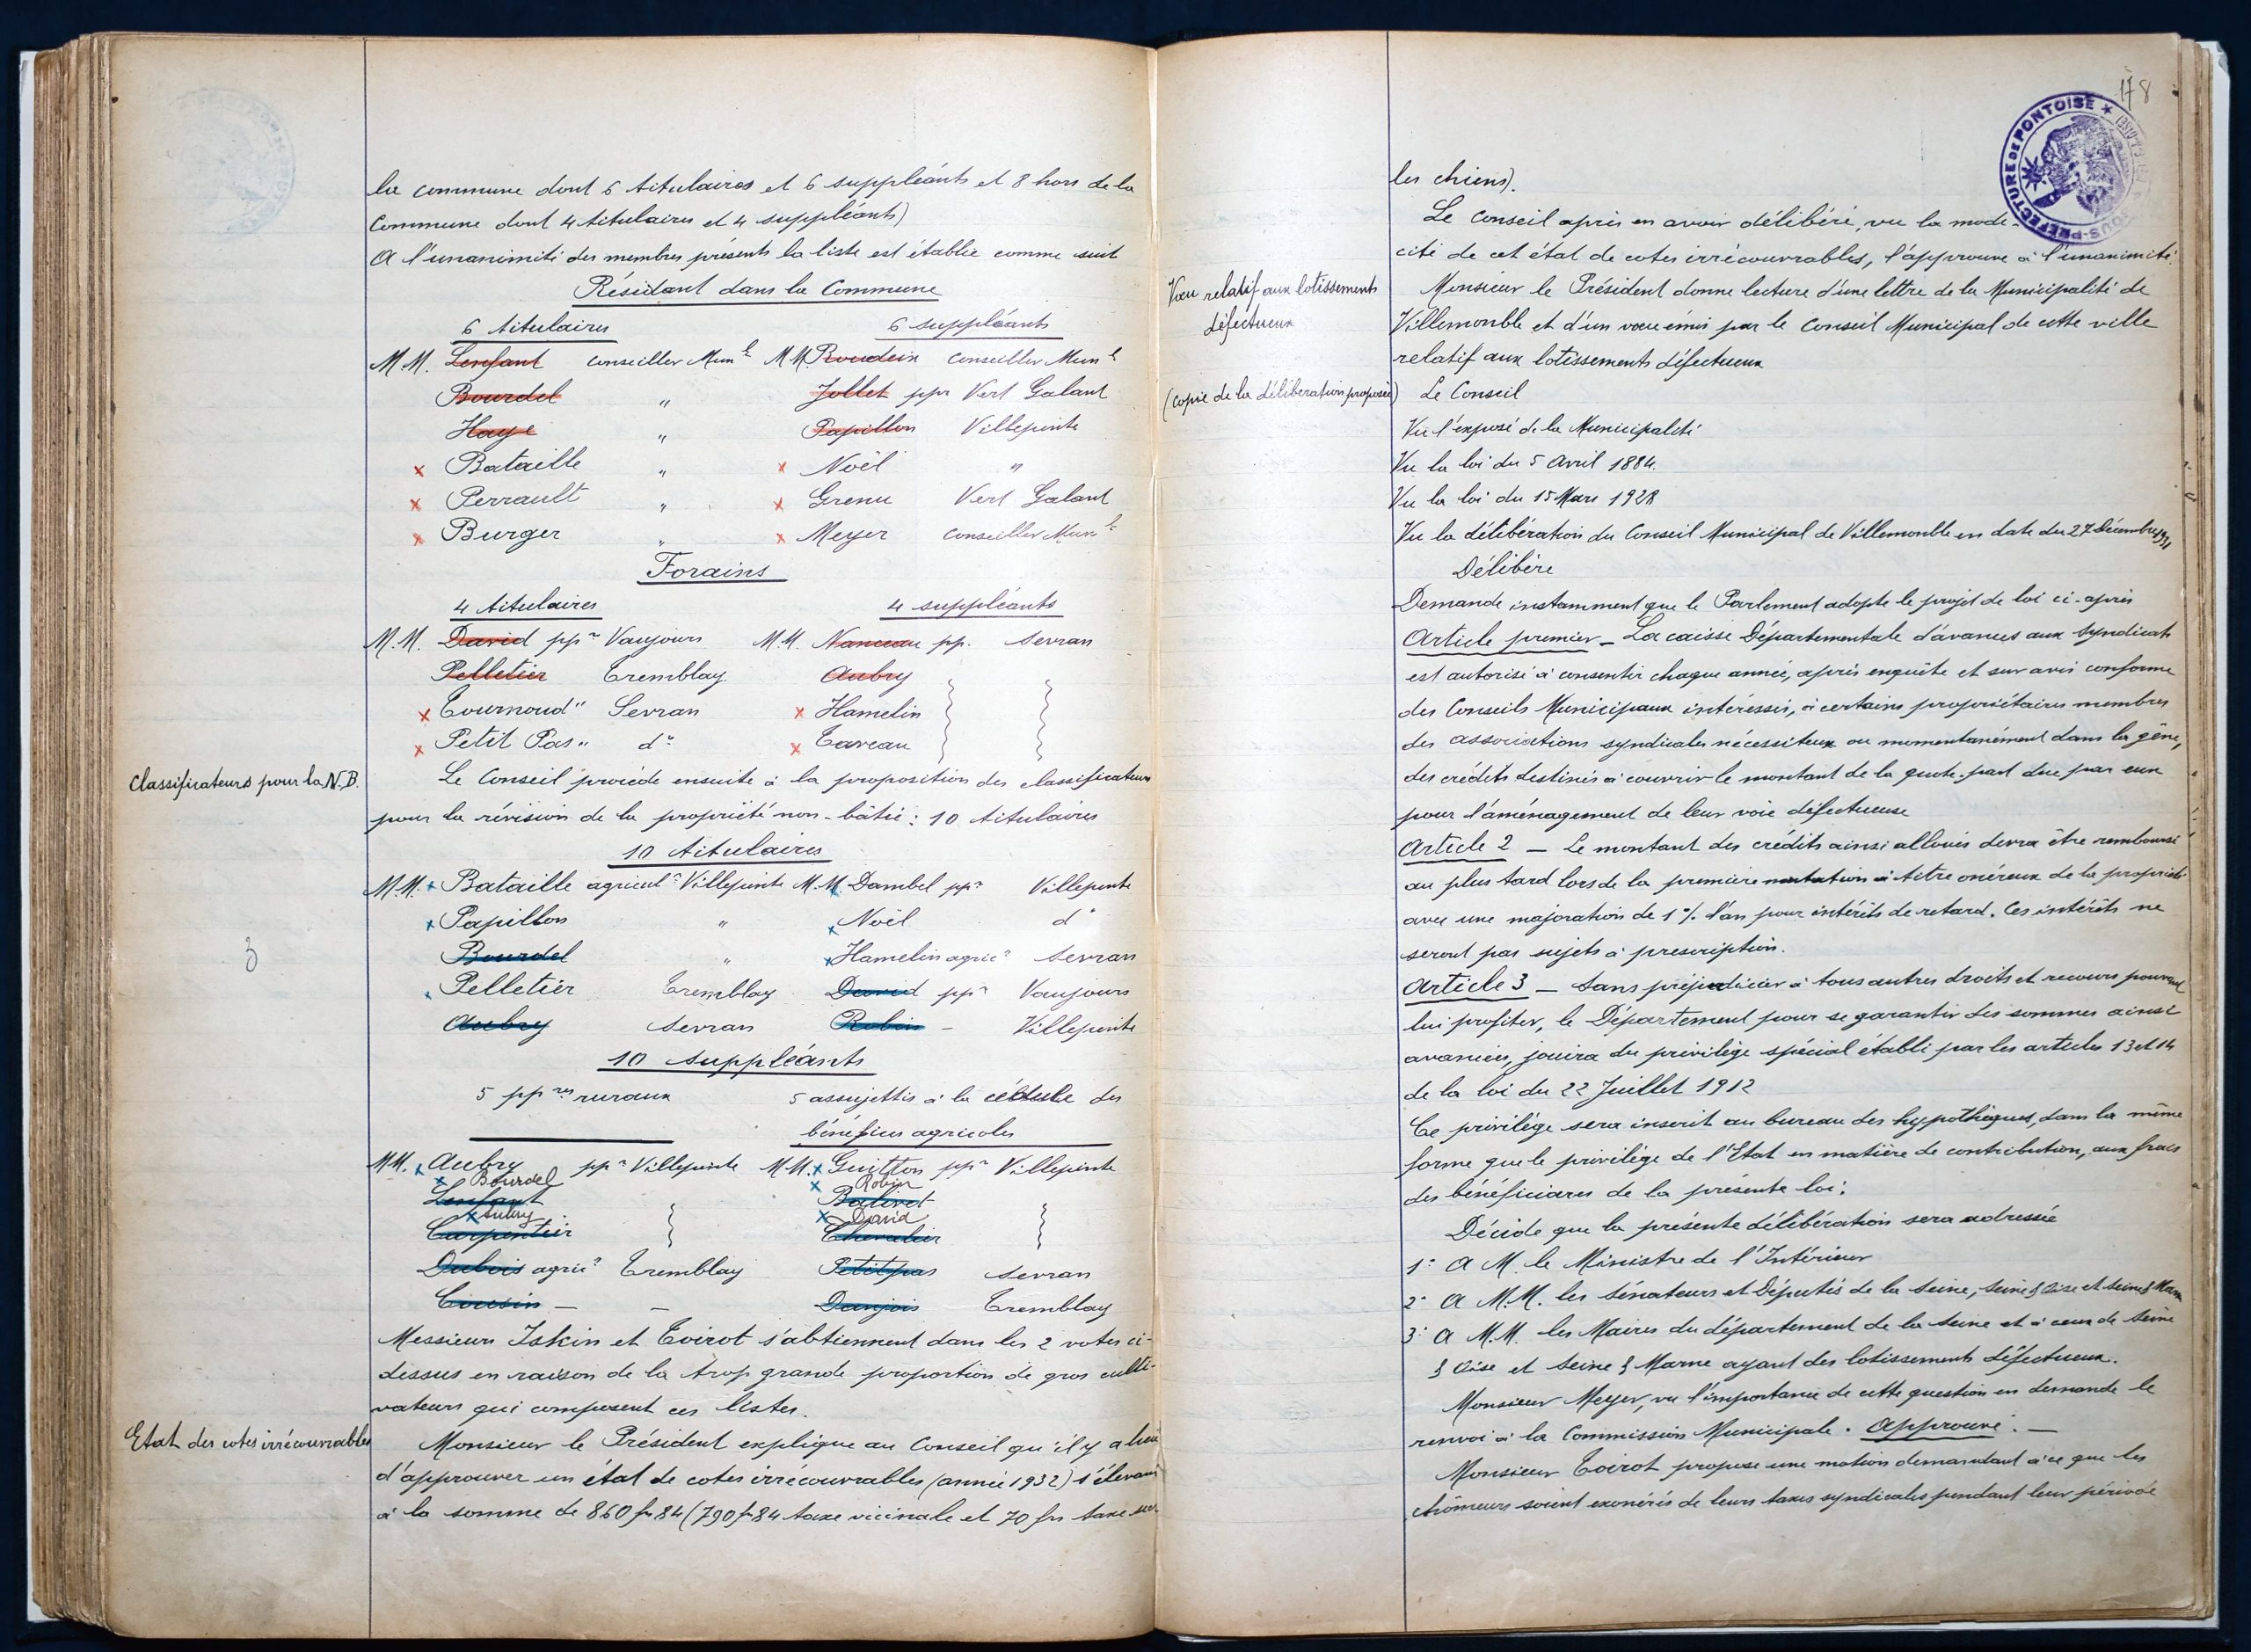 la commune dont 6 titulaires et 6 suppléants et 8 hors de la
Commune dont 4 titulaires et 4 suppléants)
A l'unanimité des membres présents la liste est établie comme suit
Résidant dans la Commune
6 titulaires 6 suppléants
M.M. Lenfant conseiller Mun^l M.M. Roudeix conseiller Mun^l
Bourdel " Jollet ppr Vert Galant
Haye " Papillon Villepinte
x Bataille " x Noël "
x Perrault " x Grenu Vert Galant
x Burger " x Meyer conseiller Mun^l
Forains
4 titulaires 4 suppléants
M.M. David pp^re Vaujours M.M. Nanceau pp. Sevran
Pelletier Tremblay Aubry
x Tournoud " Sevran x Hamelin
x Petit Pas " d° x Taveau
Classificateurs pour la N.B.
Le Conseil procède ensuite à la proposition des classificateurs
pour la révision de la propriété non-bâtie : 10 titulaires
10 titulaires
M.M. x Bataille agricult^r Villepinte M.M. x Dambel pp^re Villepinte
x Papillon " x Noël d°
Bourdel " x Hamelin agric^r Sevran
x Pelletier Tremblay David pp^re Vaujours
Aubry Sevran Robin - Villepinte
10 suppléants
5 pp^res ruraux 5 assujettis à la cédule des
bénéfices agricoles
MM. x Aubry pp^re Villepinte M.M. x Guitton pp^re Villepinte
x Bourdel x Robin
Lenfant Balivet
x Aubry x David
Carpentier Chevalier
Dubois agric^r Tremblay Petitpas Sevran
Cousin - - Danjois Tremblay
Messieurs Iskin et Toirot s'abtiennent dans les 2 votes ci-
dessus en raison de la trop grande proportion de gros culti-
vateurs qui composent ces listes.
Etat des cotes irrécouvrables
Monsieur le Président explique au Conseil qu'il y a lieu
d'approuver un état de cotes irrécouvrables (année 1932) s'élevant
à la somme de 860 frs 84 (790 frs 84 taxe vicinale et 70 frs taxe sur
178
SOUS-PRÉFECTURE DE PONTOISE
les chiens).
Le Conseil après en avoir délibéré, vu la modi-
cité de cet état de cotes irrécouvrables, l'approuve à l'unanimité.
Vœu relatif aux lotissements
défectueux
Monsieur le Président donne lecture d'une lettre de la Municipalité de
Villemomble et d'un vœu émis par le Conseil Municipal de cette ville
relatif aux lotissements défectueux
(copie de la délibération proposée)
Le Conseil
Vu l'exposé de la Municipalité
Vu la loi du 5 Avril 1884.
Vu la loi du 15 Mars 1928
Vu la délibération du Conseil Municipal de Villemomble en date du 27 Décembre 1931
Délibère
Demande instamment que le Parlement adopte le projet de loi ci-après
Article premier - La caisse Départementale d'avances aux Syndicats
est autorisé à consentir chaque année, après enquête et sur avis conforme
des Conseils Municipaux intéressés, à certains propriétaires membres
des associations syndicales nécessiteux ou momentanément dans la gêne,
des crédits destinés à couvrir le montant de la quote-part due par eux
pour l'aménagement de leur voie défectueuse
Article 2 - Le montant des crédits ainsi alloués devra être remboursé
au plus tard lors de la première mutation à titre onéreux de la propriété
avec une majoration de 1% l'an pour intérêts de retard. Ces intérêts ne
seront pas sujets à prescription.
Article 3 - Sans préjudicier à tous autres droits et recours pouvant
lui profiter, le Département pour se garantir des sommes ainsi
avancées, jouira du privilège spécial établi par les articles 13 et 14
de la loi du 22 Juillet 1912
Ce privilège sera inscrit au bureau des hypothèques, dans la même
forme que le privilège de l'Etat en matière de contribution, aux frais
des bénéficiaires de la présente loi.
Décide que la présente délibération sera adressée
1° A M. le Ministre de l'Intérieur
2° A M.M. les Sénateurs et Députés de la Seine, Seine & Oise et Seine & Marne
3° A M.M. les Maires du département de la Seine et à ceux de Seine
& Oise et Seine & Marne ayant des lotissements défectueux.
Monsieur Meyer, vu l'importance de cette question en demande le
renvoi à la Commission Municipale. Approuvé. -
Monsieur Toirot propose une motion demandant à ce que les
chômeurs soient exonérés de leurs taxes syndicales pendant leur période